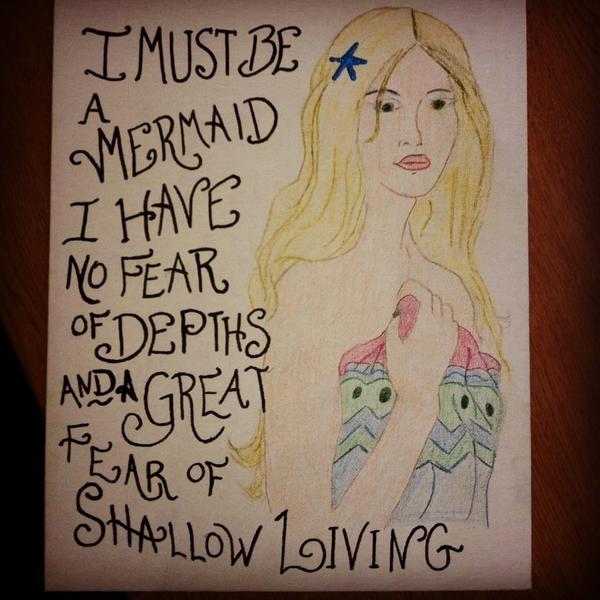 I MUST BE
A
MERMAID
I HAVE
NO FEAR
OF DEPTHS
AND A GREAT
FEAR OF
SHALLOW LIVING